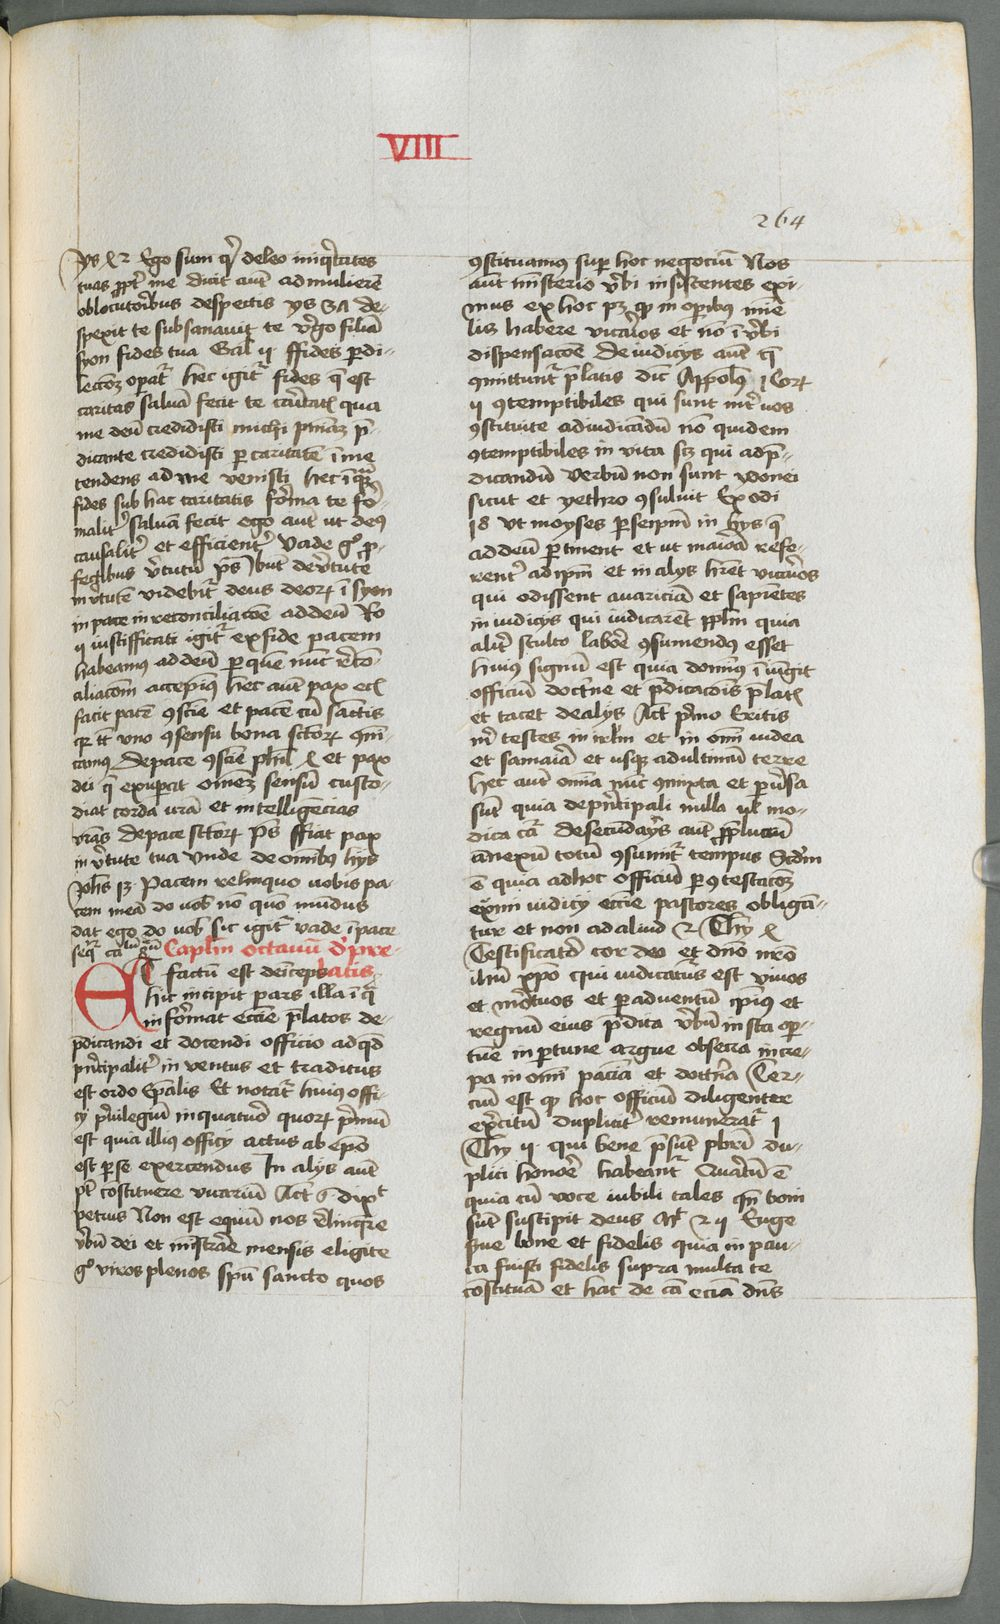 VIII
264
ys xl2 Ego sum q̇ deleo iniq̇tates
tuas ꝓpt̕ me dicit aut̄ ad mulierē
oblocutoribus despectis ys 37 de-
spexit te subsanauit te v̕go filia
syon fides tua Gal̕ ij ffides ꝑ di-
lectōeȝ opat̕ hec igit̕ fides q̄ est
caritas saluā fecit te
me deū credidisti michi p̄
dicante credidisti ꝑ caritatē ī me
tendens ad me venisti hec
fides sub hac caritatis forma te for-
malit̕ saluā fecit ego aut̄ ut deꝰ
causalit̕ et efficient̕ Vade gͦ
ībut de v̕tute
in v̕tutē videbit̕ deus deoꝝ ī syon
in pace in reconciliacōe ad deū Ro
ij iustifficati igit̕ ex fide pacem
habeamus ad deū ꝑ quē nūc recō-
aliacōm accepimꝰ hec aut̄ pax
facit pacē ꝯscīe et pacē cū sanctis
uno ꝯsensu bona sctoꝝ
De pace ꝯscīe phil̕ et pax
dei q̄ exupat omēȝ sensū custo-
diat corda vrā et intelligencias
vrās De pace sctoꝝ ps̄ ffiat pax
in v̕tute tua Unde de omībus hijs
Joh̄s 13 Pacem relinquo uobis pa-
cem meā do uob̕ nō quō mūdus
dat ego do uob̕ sic igit̕ vade ī pace
Caplm̄ octauū d̕ pre-
latis
Et factū est deīceps
hic incipit pars illa ī q̄
informat ecc̄ie p̄latos de
p̄dicandi et docendi officio ad qd̕
p̄ncipalit̕ inventus et traditus
est ordo ep̄alis Et notat̕ huiꝰ offi-
cij p̕uilegiū in quatuor quoꝝ p̕mū
est quia illiꝰ officij actus ab ep̄o
est ꝑ se exercendus In alijs aut̄
pt̕ costituere vicariū Act̕ 6 dix̕t
petrus Non est equū nos relinq̄re
v̕bū dei et mīstrare mensis eligite
gͦ viros plenos sp̄u sancto quos
ꝯstituamus suꝑ hoc negociū Nos
aut̄ mīsterio v̕bi insistentes eri-
mus ex hoc pȝ ꝙ in opibꝰ
habere vicarios et nō ī v̕bi
dispensacōe De iudicijs aut̄ q̄
ꝯmittunt̕ p̄latis dic̄ Appol̕us i Cor̕
ij ꝯtemptibiles qui sunt int̕ uos
ꝯstituite ad iudicādū nō quidem
ꝯtemptibiles in vita sȝ qui ad p̄-
dicandū verbū non sunt ydonei
sicut et yethro ꝯsuluit Exodi
18 ut moyses ꝑ seip̄m in hijs q̄
ad deū ꝑtinent et ut maiora refe-
rent̕ ad ip̄m et in alijs hret vicarios
qui odissent auariciā et sapientes
in iudicijs qui iudicarēt pplm̄ quia
alit̕ stulto labore ꝯsumendꝰ esset
huiꝰ signū est quia domīnꝰ ī iūgit
officiū doctrine et p̄dicacōis p̄latis
et tacet de alijs Act̕ p̕mo Eritis
m̕ testes in irlm̄ et in omī iudea
et samaria et usqꝫ ad ultimū terre
hec aut̄ omīa nūc ꝯmixta et ꝑuersa
sūt quia de p̄ncipali nulla ul̕ mo-
dica cā de secundarijs aut̄
annexū totū ꝯsumit̕ tempus Scd̕m
ē quia ad hoc officiū ꝑ ꝯtestacōeȝ
exīmi iudicij ecc̄ie pastores obligan-
tur et non ad aliud 2 Thy
Testificator cor̄ deo et dn̄o nr̄o
ihū xpo qui iudicaturus est viuos
et mortuos et ꝑ aduentū ip̄iꝰ et
regnū eius p̄dica v̕bū insta opor-
tune inportune argue obsecra incre-
pa in omī pacia et doctrina Ter-
ciū est ꝙ hoc officiū diligenter
exercitū duplicit̕ remunerat̕ i
Thy ij qui bene p̄sūt pbr̄i du-
plici honore habeant̕ Quartū ē
quia cū voce iubili tales qn̄ boni
sūt suscipit deus Euge
s̕ue bone et fidelis quia in pau-
ca fuisti fidelis supra multa te
costituā et hac de cā eciā dn̄s